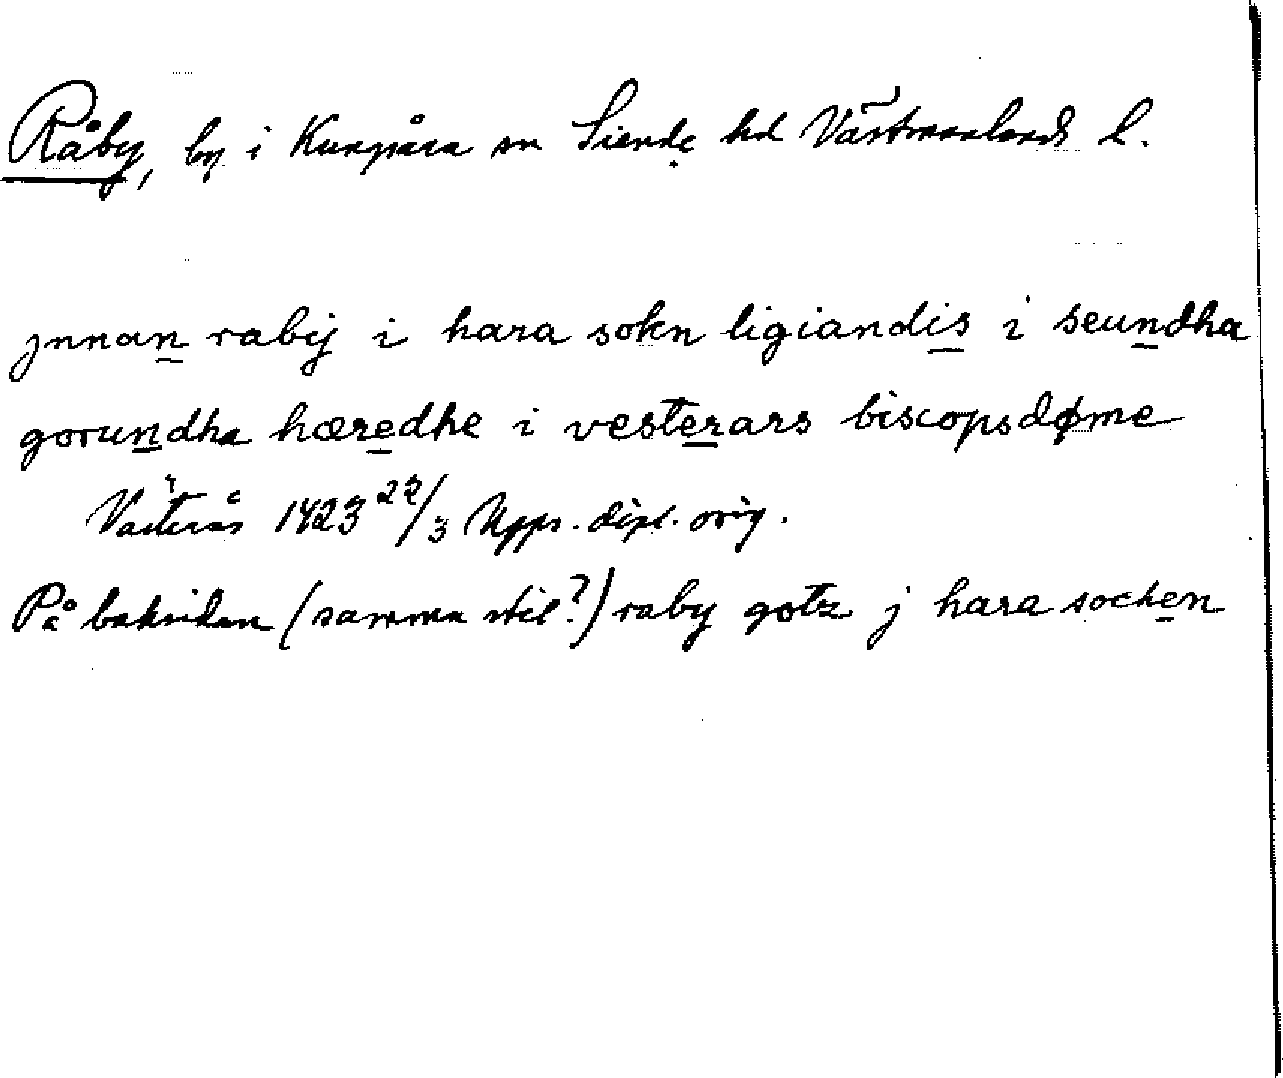 Råby, by i Kungsåra sn Siende hd Västmanlands l.
jnnan rabij i hara sokn ligiandis i seundha
gorundha hæredhe i vesterars biscopsdøme
Västerås 1423 22/3 Upps. dipl. orig.
På baksidan (samma stil?) raby gotz j hara socken